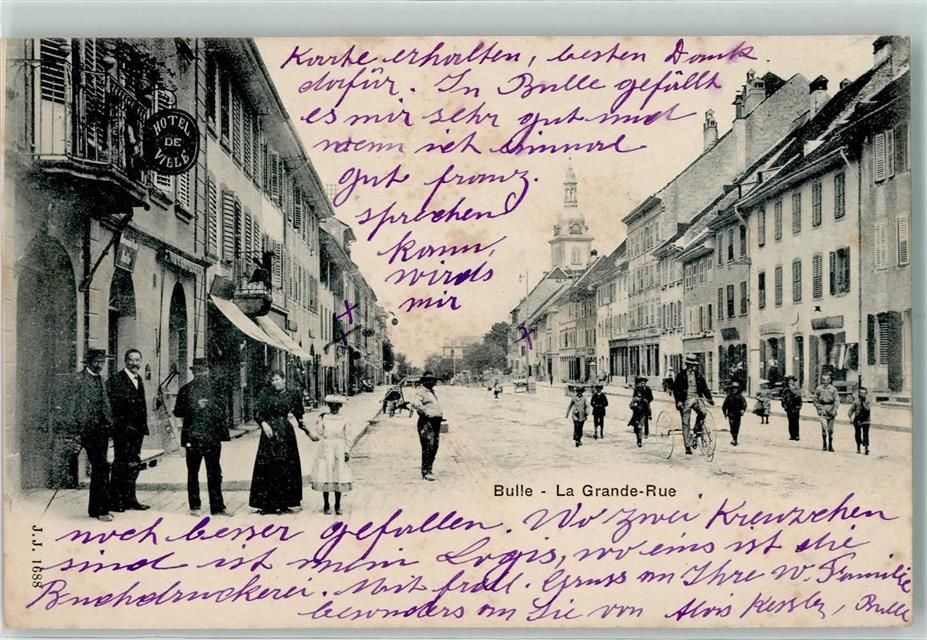 Karte erhalten, besten Dank
dafür. In Bulle gefällt
es mir sehr gut und
wenn ich einmal
gut franz.
sprechen
kann,
wirds
mir
HOTEL
DE
VILLE
Bulle - La Grande-Rue
J.J. 1688
noch besser gefallen. Wo zwei Kreuzchen
sind ist mein Logis, wo eins ist die
Buchdruckerei. Mit frdl. Gruss an Ihre W. Familie
besonders an Sie von Alois Kessler, Bulle